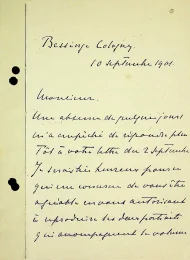 Bessinge Cologny
10 septembre 1901.
Monsieur.
Une absence de quelques jours
m'a empêché de répondre plus
tôt à votre lettre du 2 septembre
Je serais heureux pouvoir
qui me concerne de vous être
agréable en vous autorisant
à reproduire les deux portraits
qui accompagnent le volume